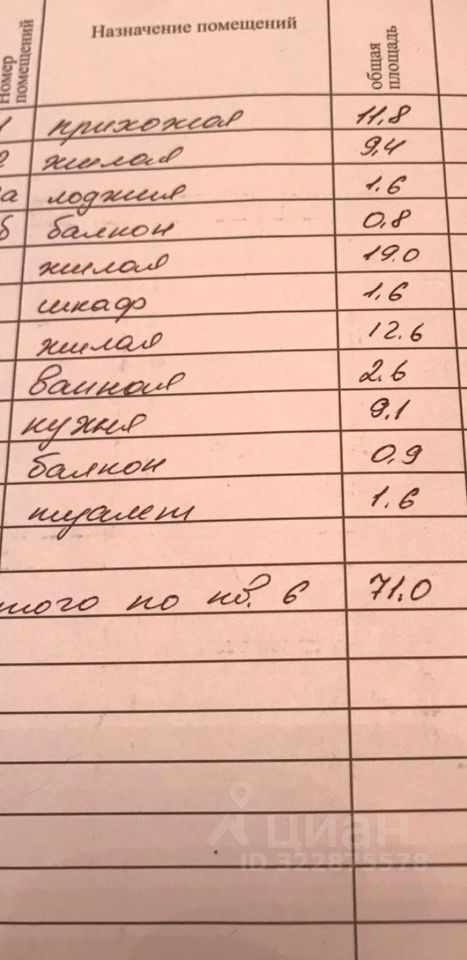 Номер помещений Назначение помещений общая площадь
1 прихожая 11.8
2 жилая 9,4
а лоджия 1.6
б балкон 0,8
жилая 19.0
шкаф 1.6
жилая 12.6
ванная 2.6
кухня 9,1
балкон 0,9
туалет 1.6
того по кв. 6 71.0
циан
ID 322875578